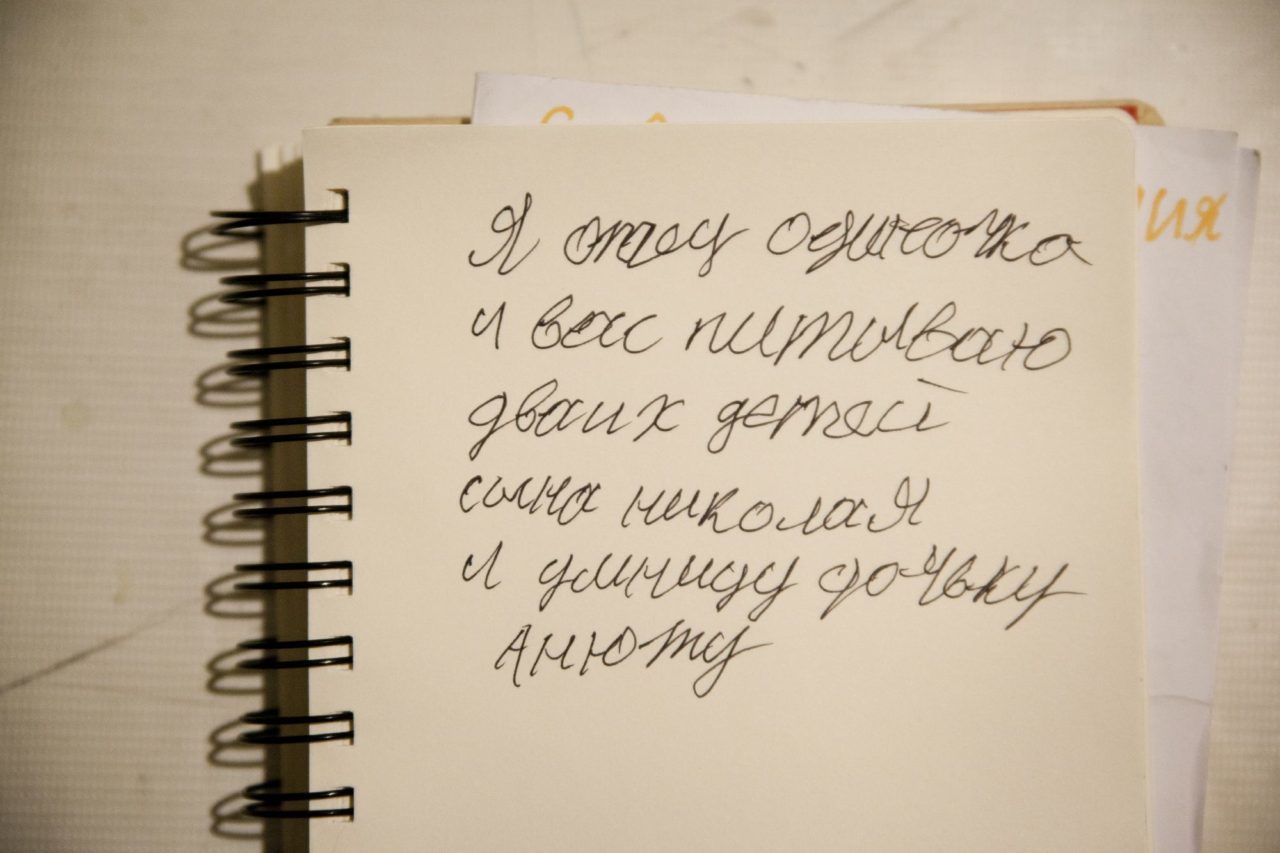 Я отец одиночка
и вас питываю
дваих детей
сына николая
и умницу дочьку
Анюту
ия